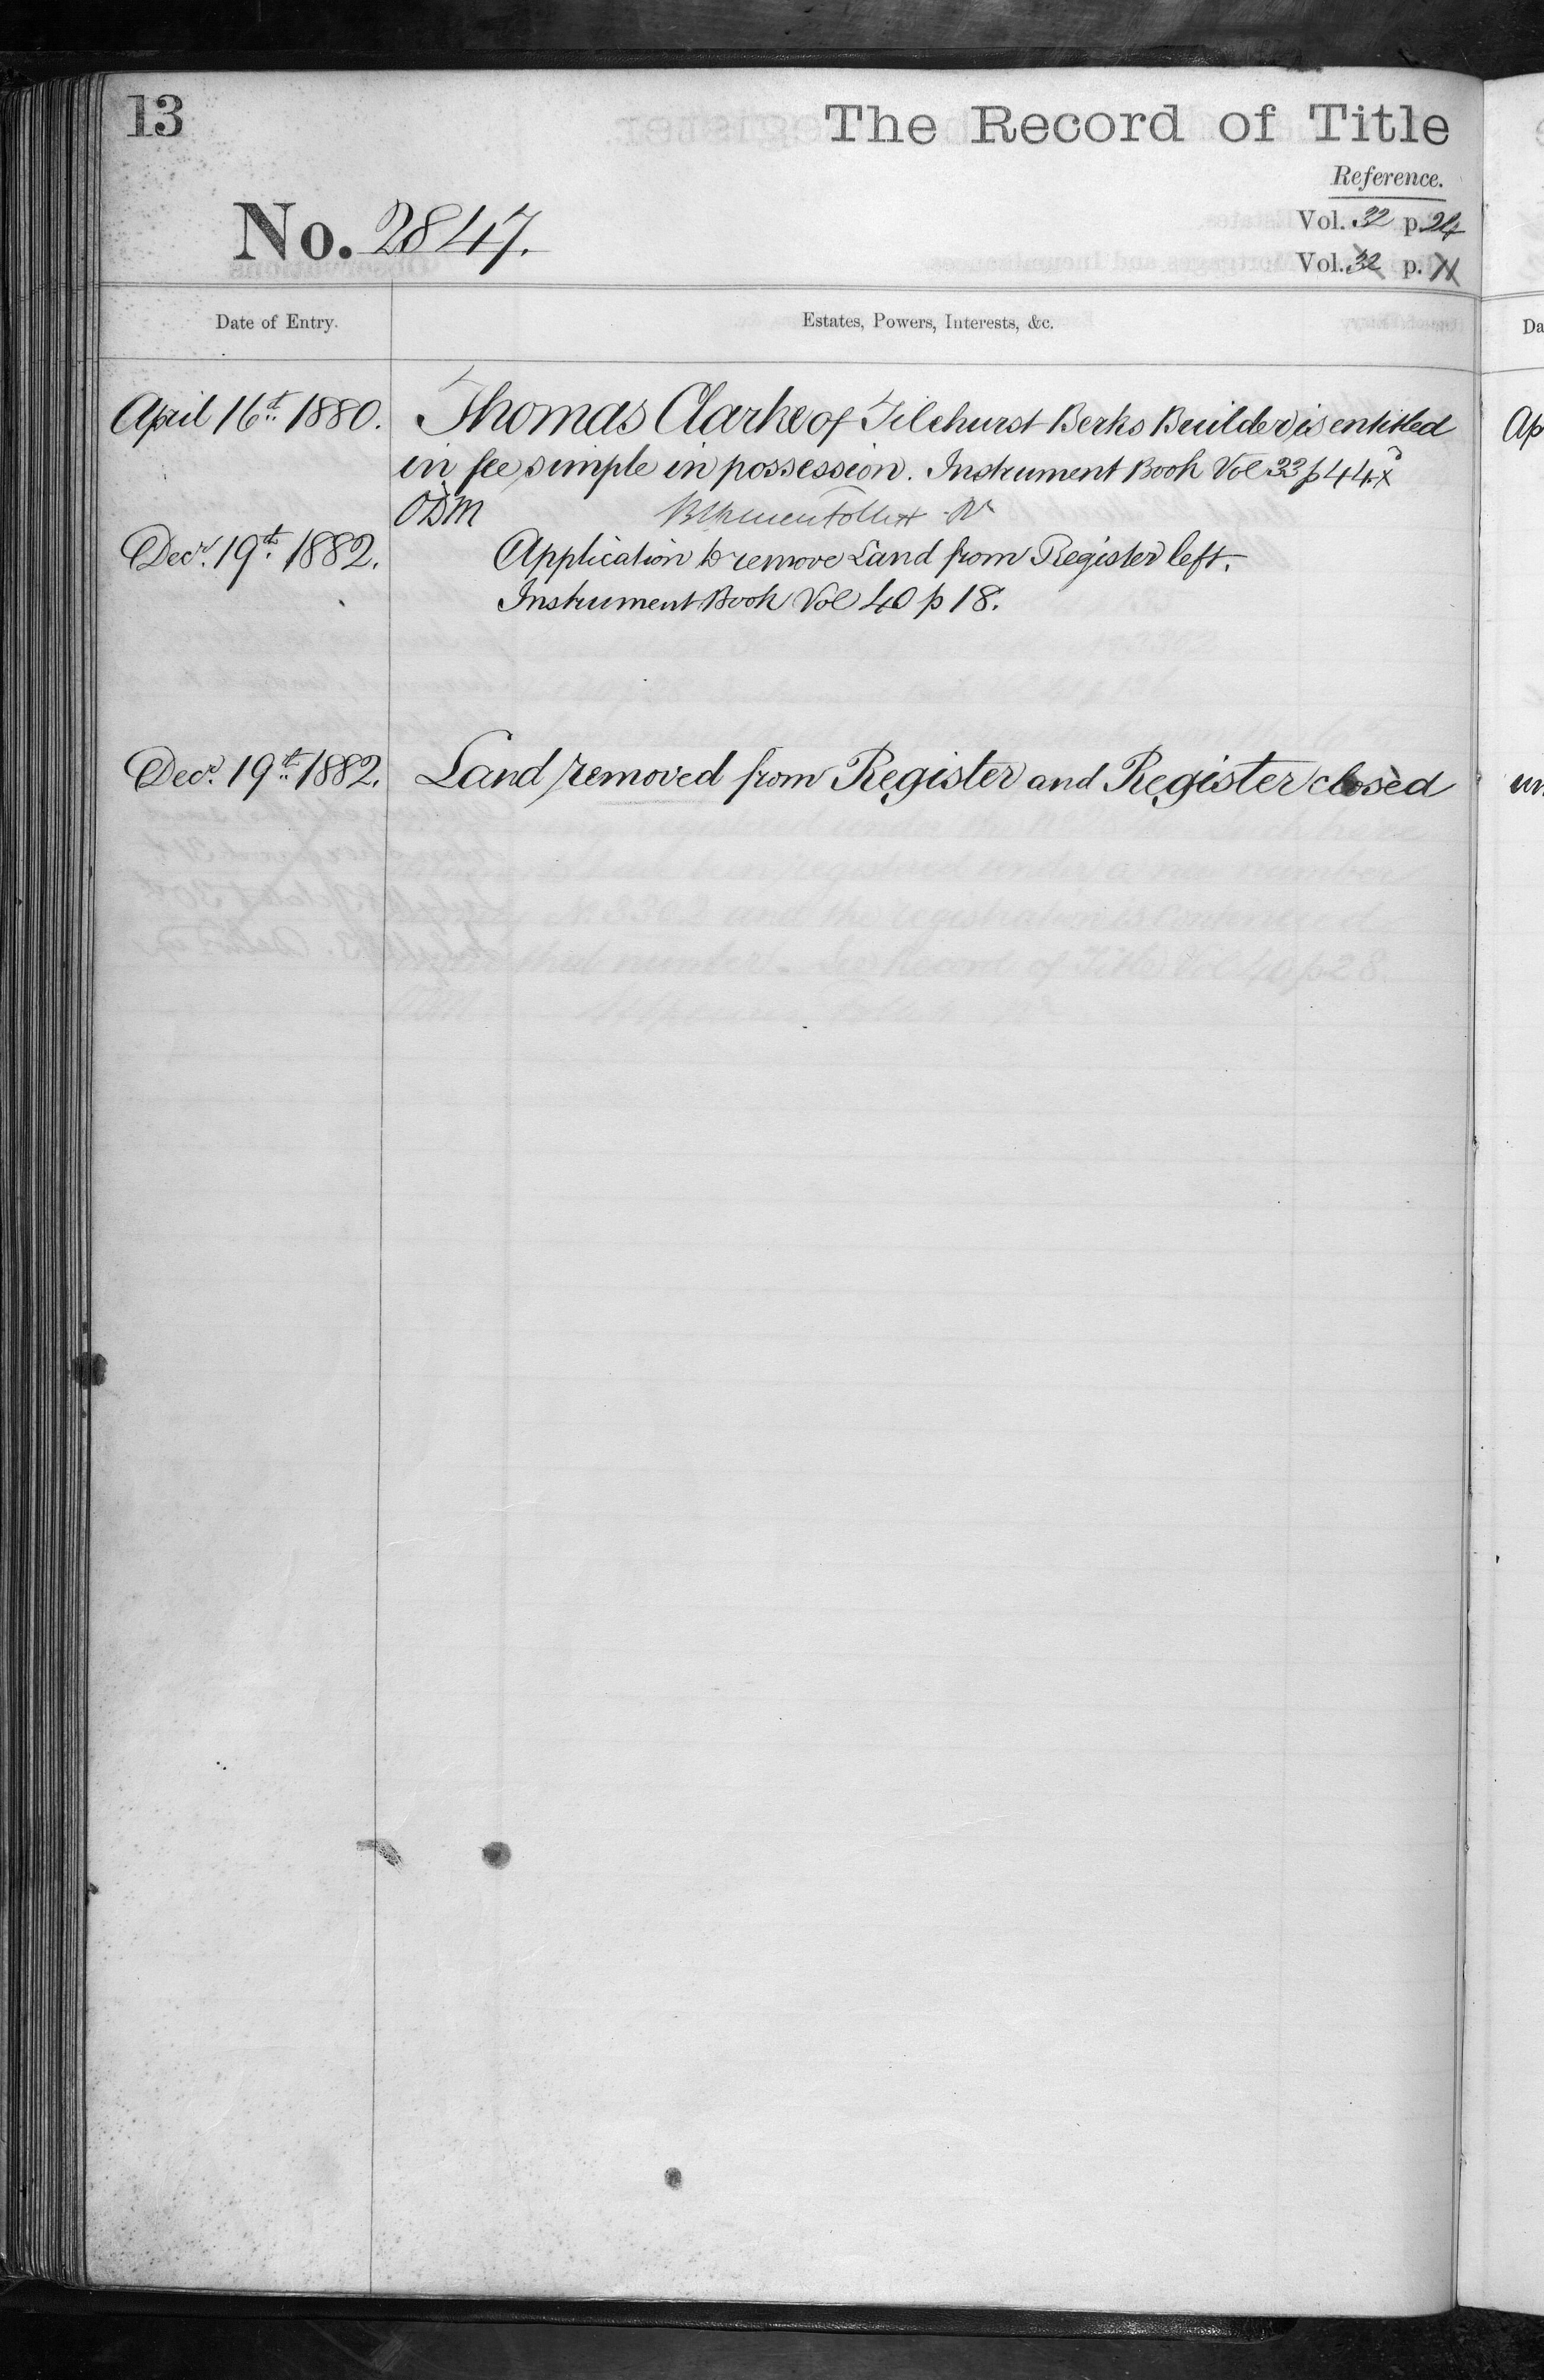 13
The Record of Title
Reference.
No. 2847.
Vol. 32 p. 24
Vol. 32 p.
Date of Entry.
Estates, Powers, Interests, &c.
April 16th 1880. Thomas Clarke of Tilehurst Berks Builder is entitled
in fee simple in possession. Instrument Book Vol 33 p 44
ODM
Decr. 19th 1882. Application to remove Land from Register left.
Instrument Book Vol 40 p 18.
Decr. 19th 1882. Land removed from Register and Register closed